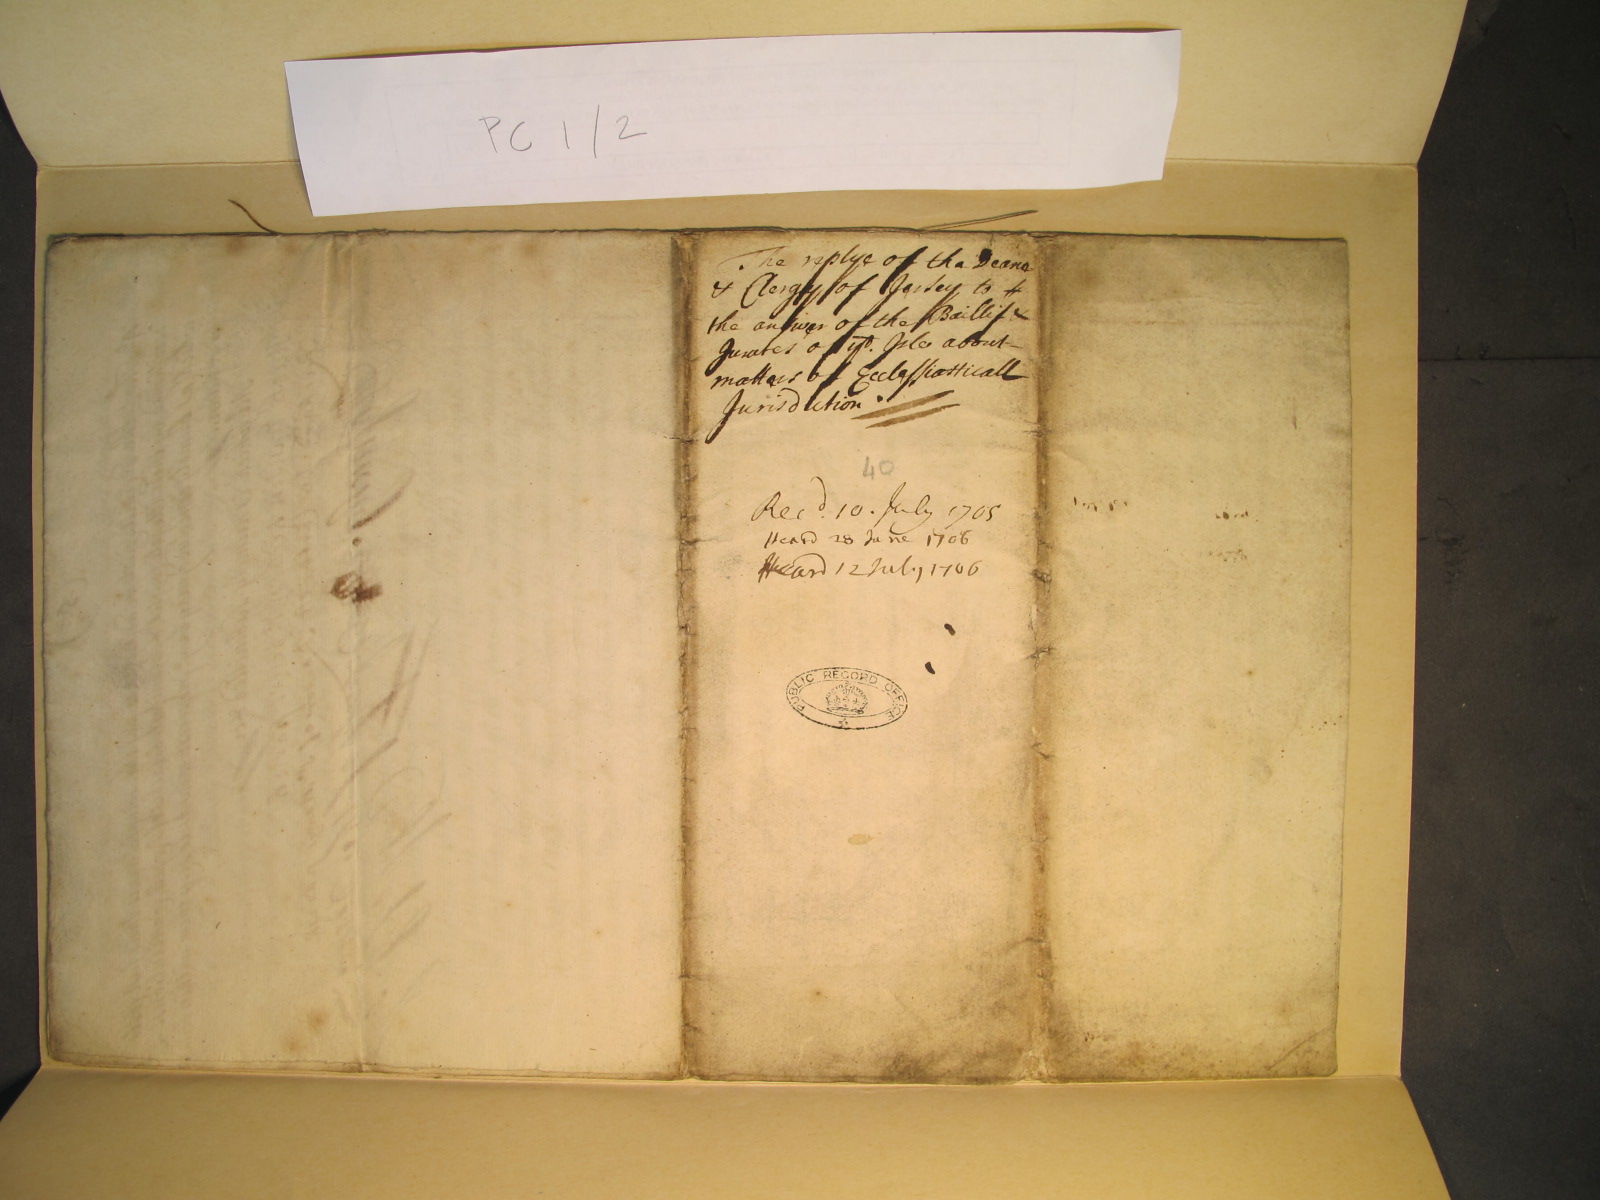 PC 1/2
The replye of the Deane
& Clergy of Jersey to
the answer of the Baillif &
Jurates of yt. Isle about
matters of Ecclessiasticall
Jurisdiction.
40
Recd. 10. July 1705
Heard 28 June 1706
Heard 12 July 1706
PUBLIC RECORD OFFICE